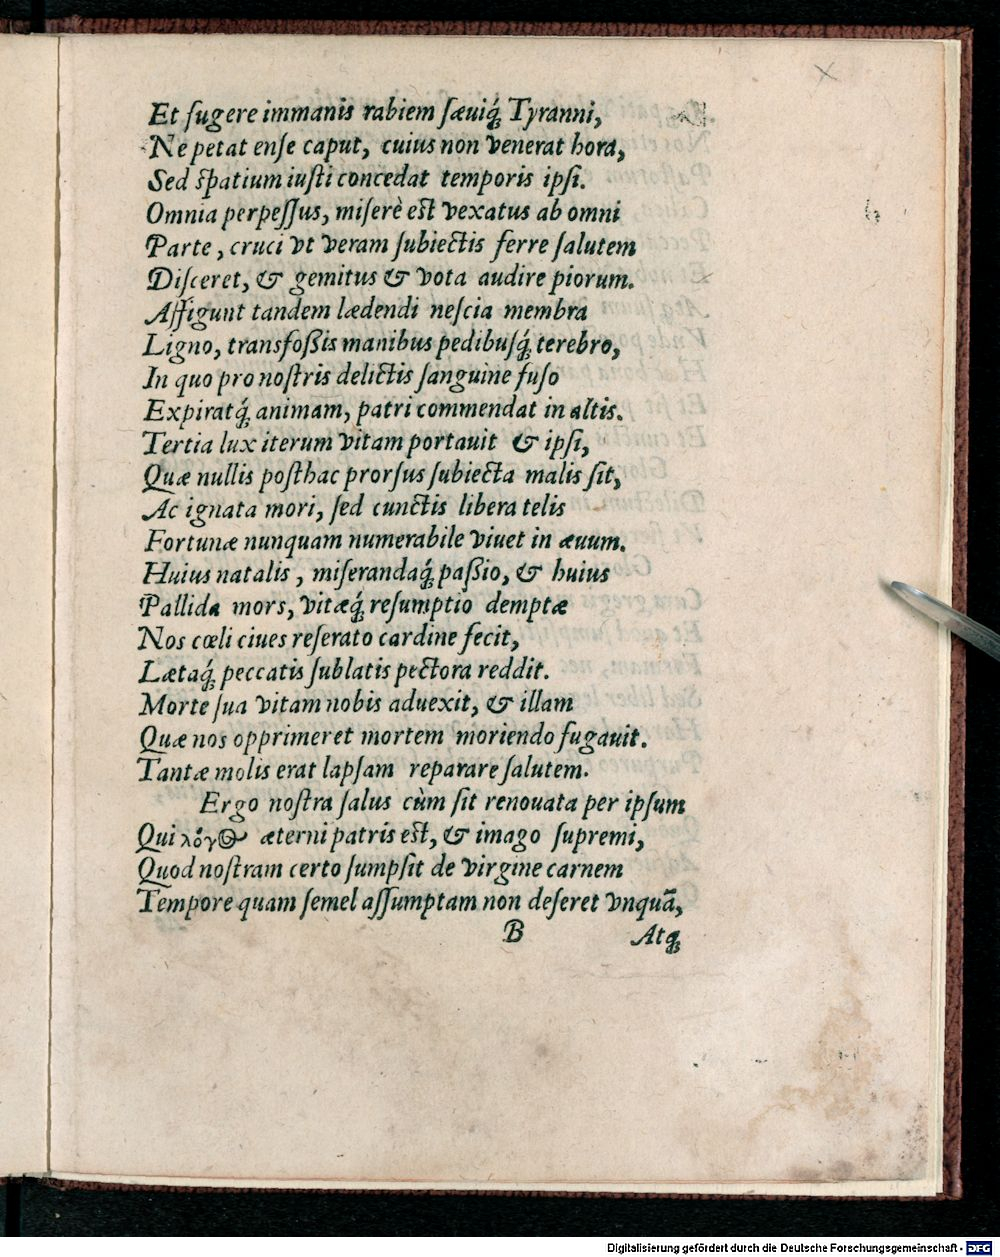 Et fugere immanis rabiem ſæuiq́; Tyranni,
Ne petat enſe caput, cuius non venerat hora,
Sed ſpatium iuſti concedat temporis ipſi.
Omnia perpeſſus, miſerè eſt vexatus ab omni
Parte, cruci vt veram ſubiectis ferre ſalutem
Diſceret, & gemitus & vota audire piorum.
Affigunt tandem lædendi neſcia membra
Ligno, transfoßis manibus pedibuſq́; terebro,
In quo pro noſtris delictis ſanguine fuſo
Expiratq́; animam, patri commendat in altis.
Tertia lux iterum vitam portauit & ipſi,
Quæ nullis poſthac prorſus ſubiecta malis ſit,
Ac ignata mori, ſed cunctis libera telis
Fortunæ nunquam numerabile viuet in æuum.
Huius natalis, miſerandaq́; paßio, & huius
Pallida mors, vitæq́; reſumptio demptæ
Nos cœli ciues reſerato cardine fecit,
Lætaq́; peccatis ſublatis pectora reddit.
Morte ſua vitam nobis aduexit, & illam
Quæ nos opprimeret mortem moriendo fugauit.
Tantæ molis erat lapſam reparare ſalutem.
Ergo noſtra ſalus cùm ſit renouata per ipſum
Qui λόγος æterni patris eſt, & imago ſupremi,
Quod noſtram certo ſumpſit de virgine carnem
Tempore quam ſemel aſſumptam non deſeret vnquã,
B Atq;
Digitalisierung gefördert durch die Deutsche Forschungsgemeinschaft - DFG